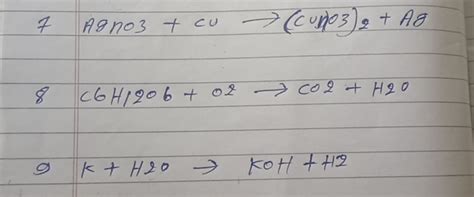 7 AgNO3 + Cu → (CuNO3)2 + Ag
8 C6H12O6 + O2 → CO2 + H2O
9 K + H2O → KOH + H2